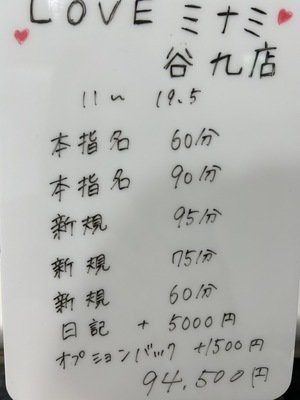 LOVE ミナミ
谷九店
11〜 19.5
本指名 60分
本指名 90分
新規 95分
新規 75分
新規 60分
日記 + 5000円
オプションバック +1500円
94,500円